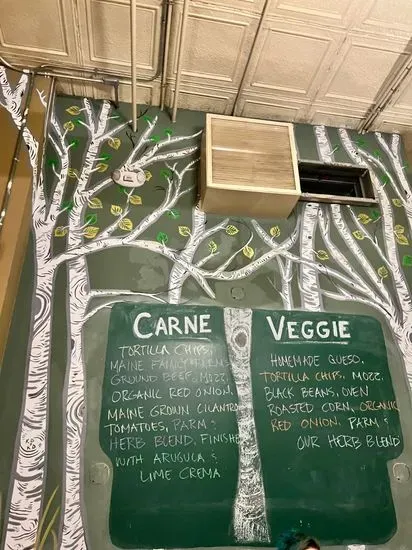 CARNE
TORTILLA CHIPS,
MAINE FAMILY FARMS
GROUND BEEF, MOZZ.
ORGANIC RED ONION,
MAINE GROWN CILANTRO
TOMATOES, PARM &
HERB BLEND. FINISHED
WITH ARUGULA &
LIME CREMA
VEGGIE
HOMEMADE QUESO,
TORTILLA CHIPS, MOZZ.
BLACK BEANS, OVEN
ROASTED CORN, ORGANIC
RED ONION. PARM &
OUR HERB BLEND